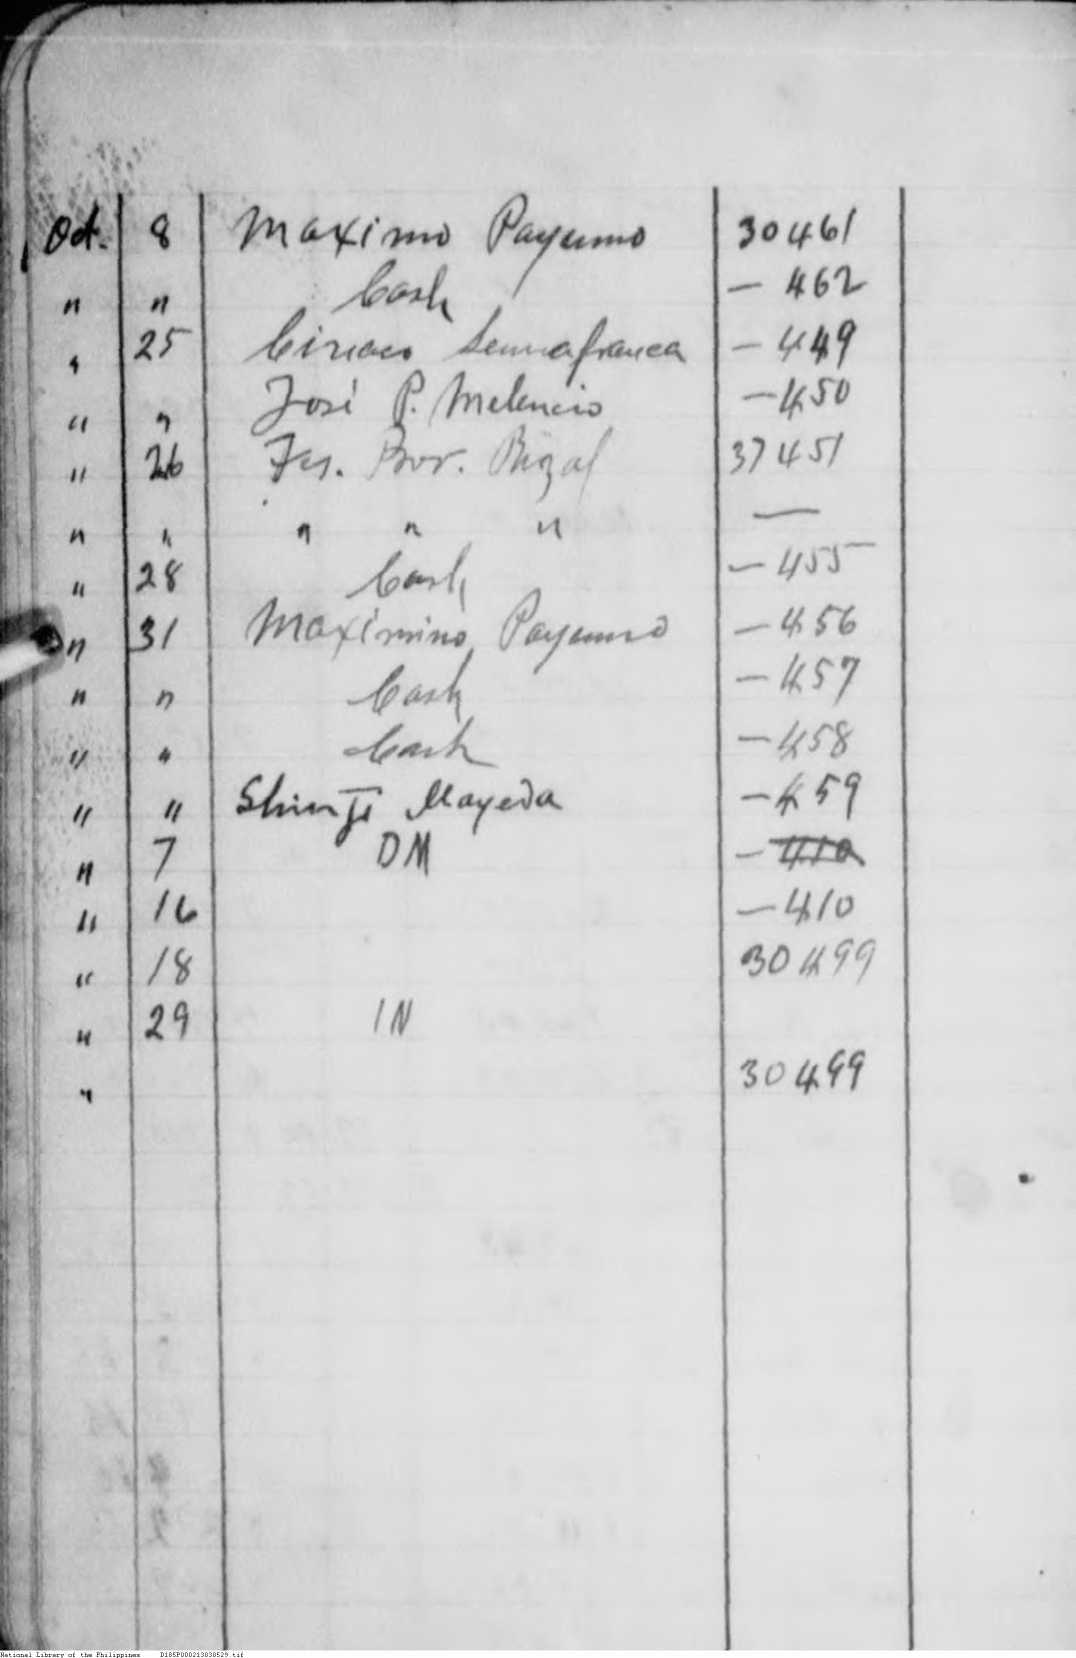 Oct. 8 Maximo Payumo 30461
" " Cash — 462
" 25 Ciriaco — 449
" " José P. Melencio — 450
" 26 Tes. Prov. Rizal 37451
" " " " " —
" 28 Cash — 455
" 31 Maximino Payumo — 456
" " Cash — 457
" " Cash — 458
" " Shinji Mayeda — 459
" 7 DM — 410
" 16 — 410
" 18 30499
" 29 IN
" 30499
National Library of the Philippines D185P000213838529.tif